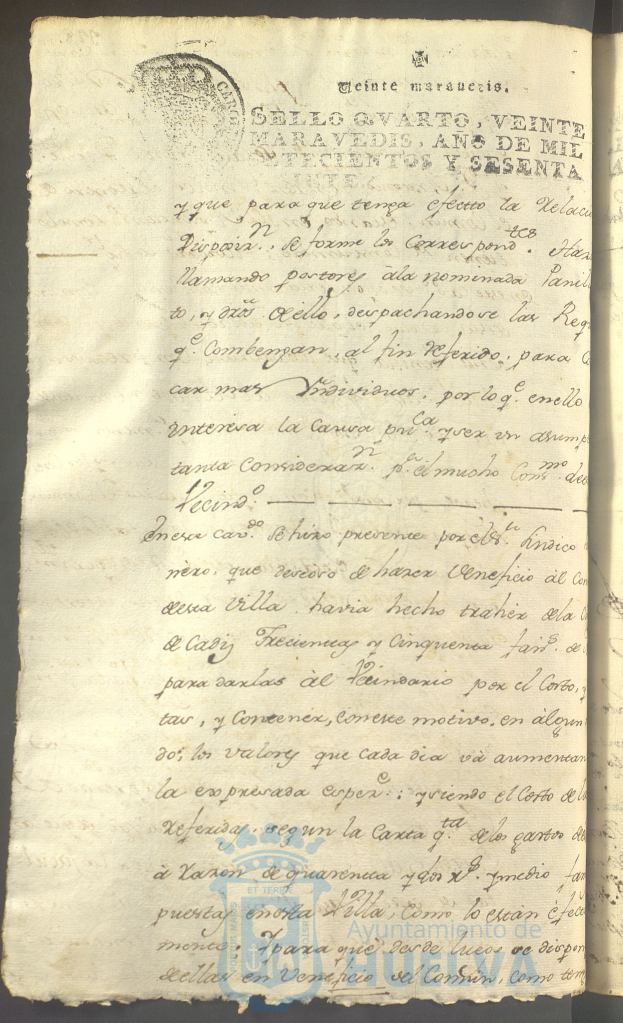 Veinte maravedis.
SELLO QVARTO, VEINTE
MARAVEDIS, AÑO DE MIL
SETECIENTOS Y SESENTA
y que para que tenga efectto la Relaci
Disposiz.n se forme los Correspond.tes
llamando postores ala nominada Panil
to, y dros de ello, despachandose las Req
q.e Combengan, al fin Referido, para C
car mas Yndividuos, por lo q.e en ello
interesa la Causa pu.ca y ser un asump
tanta Consideraz.n p.r el mucho Cons.mo de
Vecind.o
En este cav.do se hizo presente por el s.r sindico
nero, que deseoso de hazer Veneficio al Co
de esta Villa havia hecho traher de la
de Cadiz Trecientas y Cinquenta fan.s de
para darlas al Vecindario por el Costo,
tas, y Contener, con este motivo, en algun
do, los Valores que cada dia va aumentan
la expresada espez.e; y siendo el Costo de l
Referidas, segun la Carta q.ta de los gastos de
à razon de quarenta y dos r.s y medio fan
puestas en esta Villa, Como lo estan efec
mente. Y para que desde luego se dispon
de ellas en Veneficio del Comun, como ten
Ayuntamiento de
HUELVA